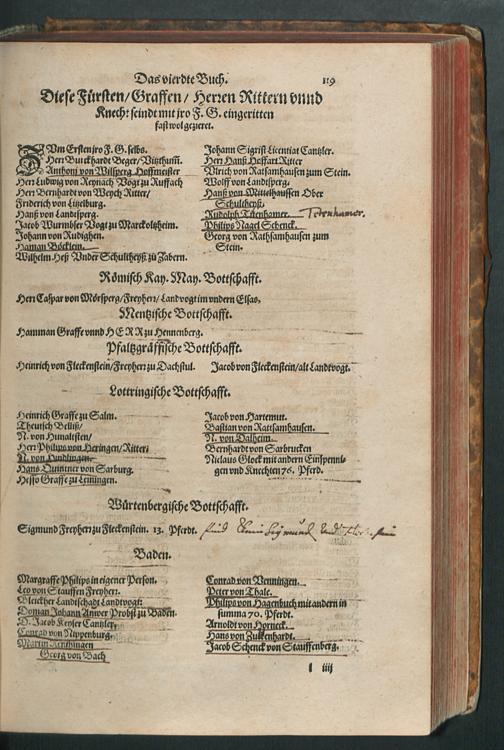 Das vierdte Buch. 119
Diese Fürsten/Graffen/ Herren Rittern vnnd
Knecht seindt mit jro F. G. eingeritten
fast wol gezieret.
ZVm Ersten jro F. G. selbs.
Herr Burckhardt Beger/Vitzthum.
Anthoni von Wilsperg Hoffmeister
Herr Ludwig von Reynach Vogt zu Ruffach
Herr Bernhardt von Weych Ritter/
Friderich von Lützelburg.
Hanß von Landtsperg.
Jacob Wurmbser Vogt zu Marckoltzheim.
Johann von Rudighen.
Haman Böcklein.
Wilhelm Heß Vnder Schultheyß zu Zabern.
Johann Sigrist Licentiat Cantzler.
Herr Hanß Hoffart Ritter
Vlrich von Ratsamhausen zum Stein.
Wolff von Landtsperg.
Hanß von Mittelhaussen Ober
Schultheyß.
Rudolph Titenhamer.
Philips Nagel Schenck.
Georg von Rathsamhausen zum
Stein.
Römisch Kay. May. Bottschafft.
Herr Caspar von Mörsperg/Freyherr/Landvogt im vndern Elsas.
Mentzische Bottschafft.
Hamman Graffe vnnd HERR zu Hennenberg.
Pfaltzgräffische Bottschafft.
Heinrich von Fleckenstein/Freyherr zu Dachstul. Jacob von Fleckenstein/alt Landvogt.
Lottringische Bottschafft.
Heinrich Graffe zu Salm.
Theutsch Belliß/
N. von Hunaltsten/
Herr Philips von Heringen/Ritter/
N. von Findlingen.
Hans Quintner von Sarburg.
Hesso Graffe zu Leiningen.
Jacob von Hartemut.
Bastian von Rattsamhausen.
N. von Dalheim.
Bernhardt von Sarbrucken
Niclaus Glock mit andern Einspenni-
gen vnd Knechten 76. Pferd.
Würtenbergische Bottschafft.
Sigmund Freyherr zu Fleckenstein. 13. Pferdt.
Baden.
Marggraffe Philips in eigener Person.
Leo von Stauffen Freyherr.
Bleickher Landtschadt Landtvogt:
Doman Johann Anwer Probst zu Baden.
D. Jacob Keyser Cantzler,
Conrad von Nippenburg.
Martin Rerchingen
Georg von Bach
Conrad von Venningen.
Peter von Thale.
Philips von Hagenbuch mit andern in
summa 70. Pferdt.
Arnolt von Horneck.
Hans von Zulkenhardt.
Jacob Schenck von Stauffenberg.
l iiij